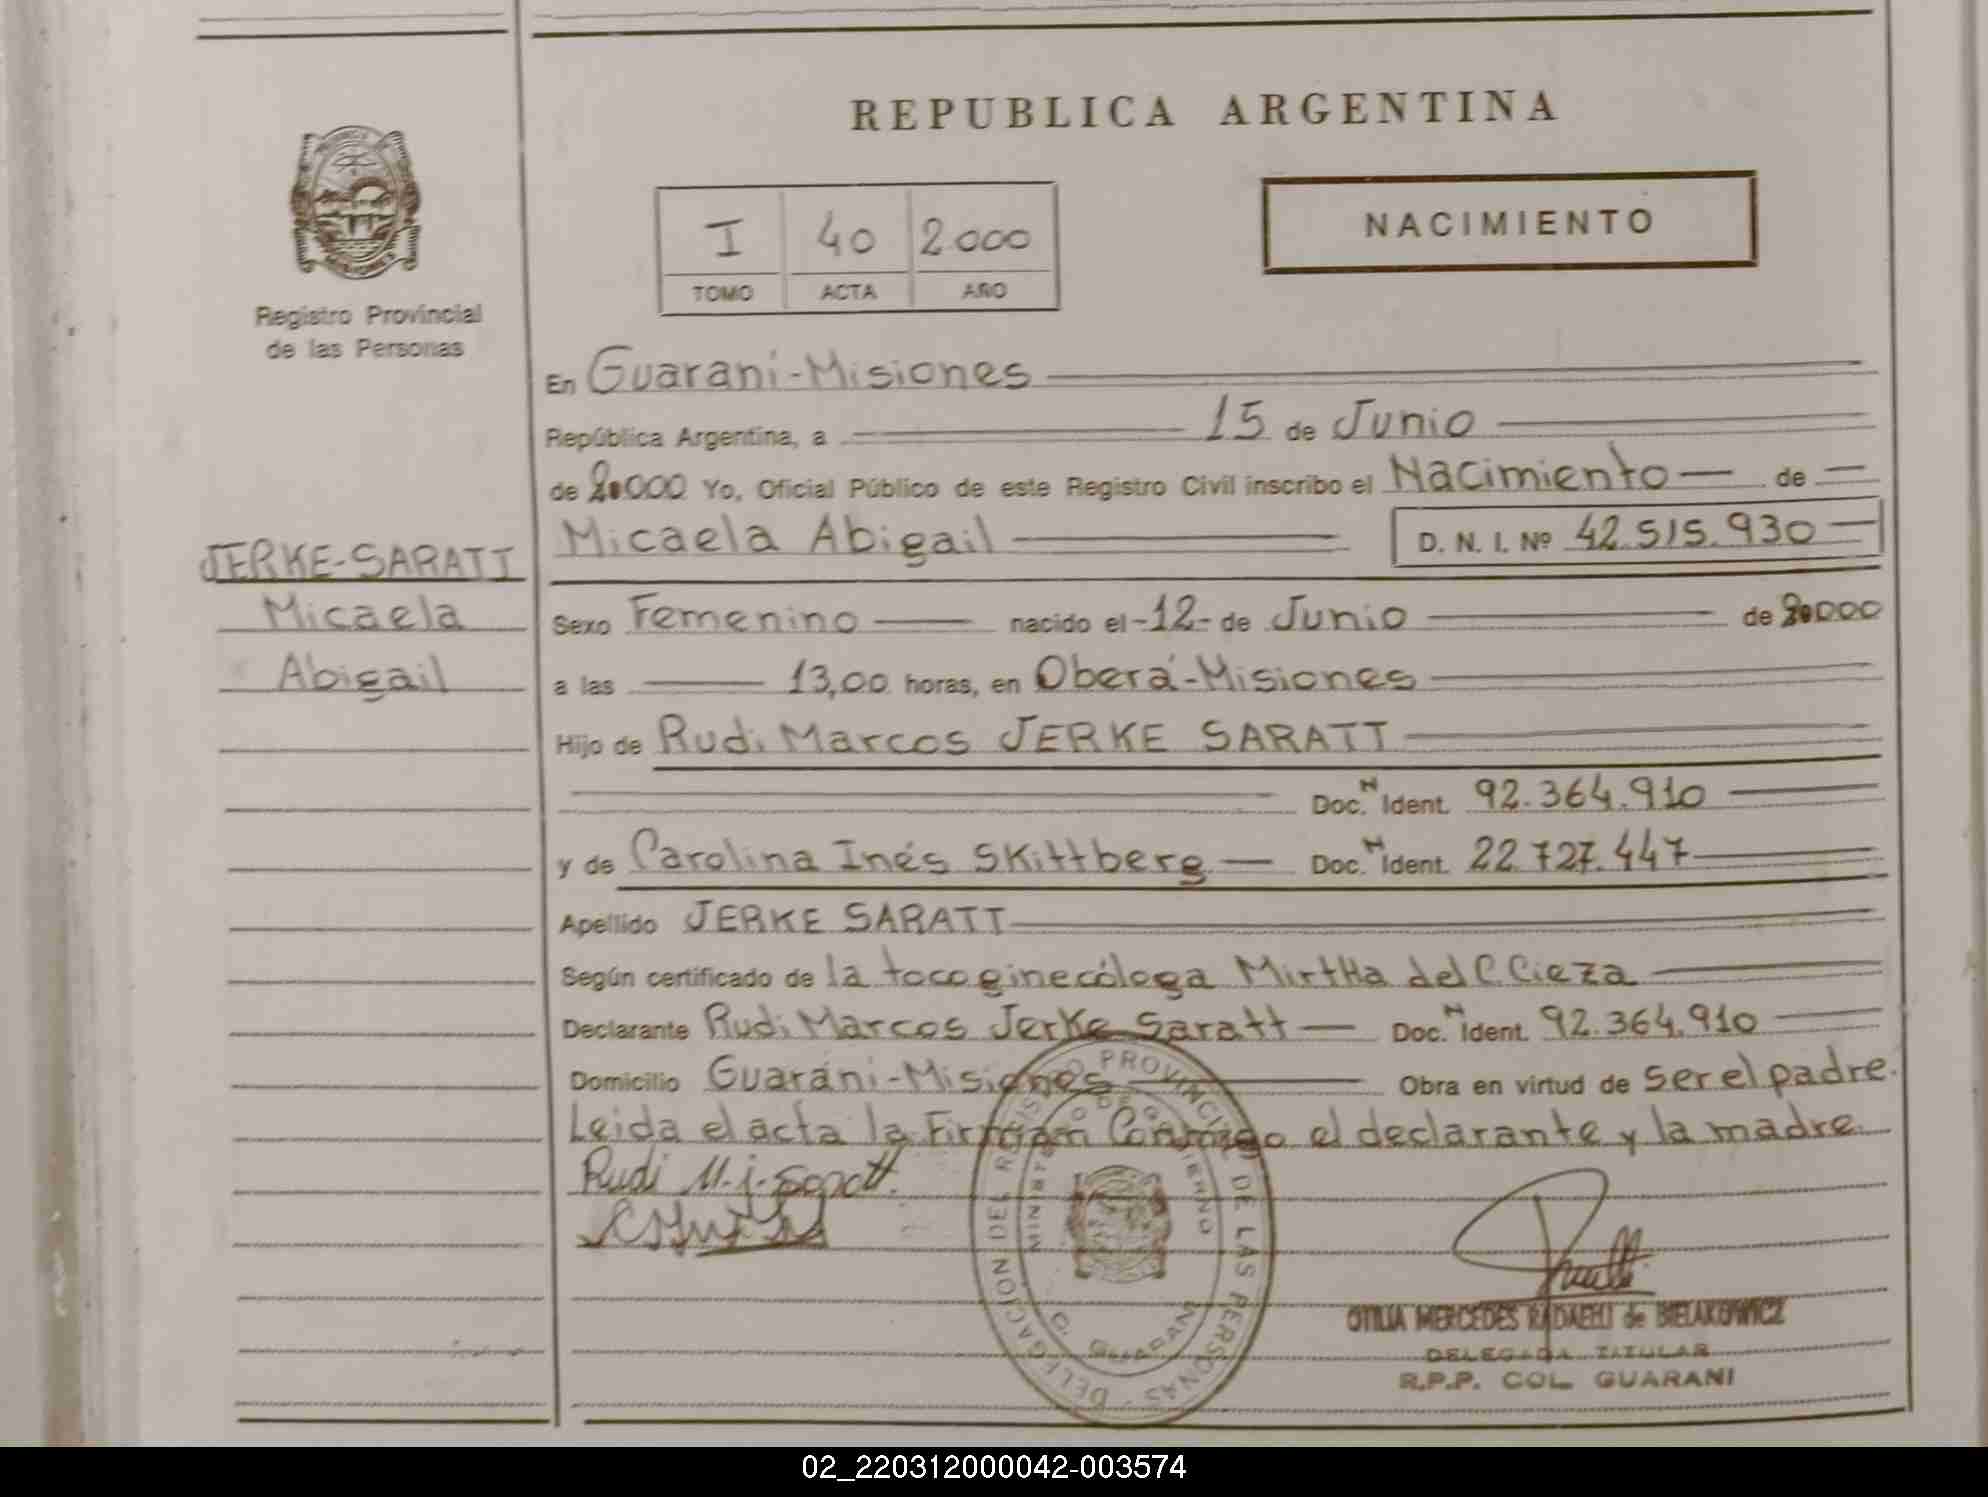 REPUBLICA ARGENTINA
NACIMIENTO
I 40 2.000
TOMO ACTA AÑO
Registro Provincial
de las Personas
En Guaraní-Misiones
República Argentina, a 15 de Junio
de 2.000 Yo, Oficial Público de este Registro Civil inscribo el Nacimiento de
Micaela Abigail D. N. I. Nº 42.515.930
JERKE-SARATT
Micaela
Abigail
Sexo Femenino nacido el -12- de Junio de 2.000
a las 13,00 horas, en Oberá-Misiones
Hijo de Rudi Marcos JERKE SARATT
Doc. N Ident. 92.364.910
y de Carolina Inés Skittberg Doc. N Ident. 22.727.447
Apellido JERKE SARATT
Según certificado de la tocoginecóloga Mirtha del C. Cieza
Declarante Rudi Marcos Jerke Saratt Doc. N Ident. 92.364.910
Domicilio Guaraní-Misiones Obra en virtud de ser el padre.
Leida el acta la Firman Conmigo el declarante y la madre.
Rudi M. J. Saratt.
DELEGACION DEL REGISTRO PROVINCIAL DE LAS PERSONAS
MINISTERIO DE GOBIERNO
C. GUARANI
OTILIA MERCEDES RADAELLI de BIELAKOWICZ
DELEGADA TITULAR
R.P.P. COL. GUARANI
02_220312000042-003574